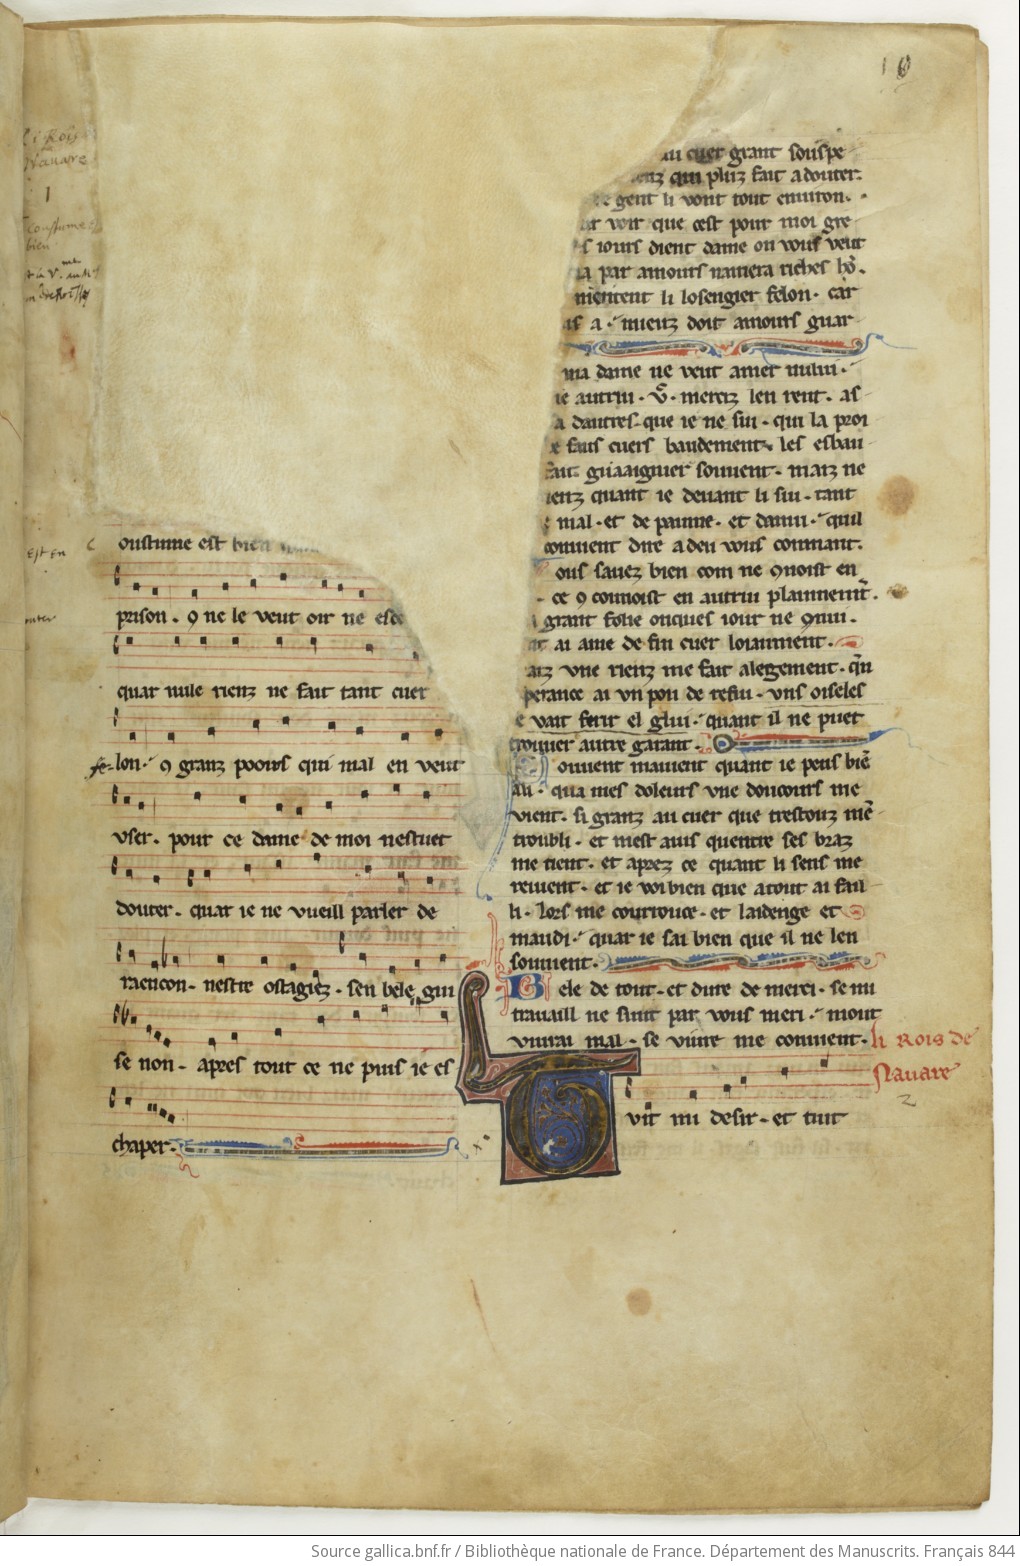 10
li Rois
Navare
1
Coustume
bien
Est en
oustume est bien
prison · ꝯ ne le veut oir ne esco
quar nule rienz ne fait tant cuer
felon · ꝯ granz poours qui mal en veut
vser · pour ce dame de moi nestuet
douter · quar ie ne vueill parler de
raencon · nestre ostagiez · sen bele gui
se non · apres tout ce ne puis ie es
chaper ·
au cuer grant souspe
enz qui pluz fait a douter·
gent li vont tout enuiron·
voir que cest pour moi gre
s iours dient dame on vous veut
ia par amours namera riches hō·
mentent li losengier felon · car
as a · mieuz doit amours guar
ma dame ne veut amer nului ·
ie autrui · v̄ · merciz len rent · as
a dautres · que ie ne sui · qui la proi
e faus cuers baudement · les esbau
fait guaaignier souuent · maiz ne
ienz quant ie deuant li sui · tant
mal · et de painne · et danui · quil
conuient dire a deu vous conmant·
ous sauez bien com ne ꝯnoist en
ce ꝯ connoist en autrui plainnemt̄·
grant folie onques iour ne ꝯnui·
ai ame de fin cuer loiaument·
aiz vne rienz me fait alegement · qn̄
perance ai vn pou de refui · vns oiseles
e vait ferir el glui · quant il ne puet
trouuer autre garant ·
ouuent mauient quant ie pens biē
an · qua mes doleurs vne doucours me
vient · si granz au cuer que trestouz mē
troubli · et mest auis quentre ses braz
me tient · et aprez ce quant li sens me
reuient · et ie voi bien que a tout ai fail
li · lors me courrouce · et laidenge et
maudi · quar ie sai bien que il ne len
souuient ·
Bele de tout · et dure de merci · se mi
trauaill ne sunt par vous meri · mout
viurai mal · se viure me conuient·
li Rois de
Nauare
2
Tuit mi desir · et tuit
Source gallica.bnf.fr / Bibliothèque nationale de France. Département des Manuscrits. Français 844